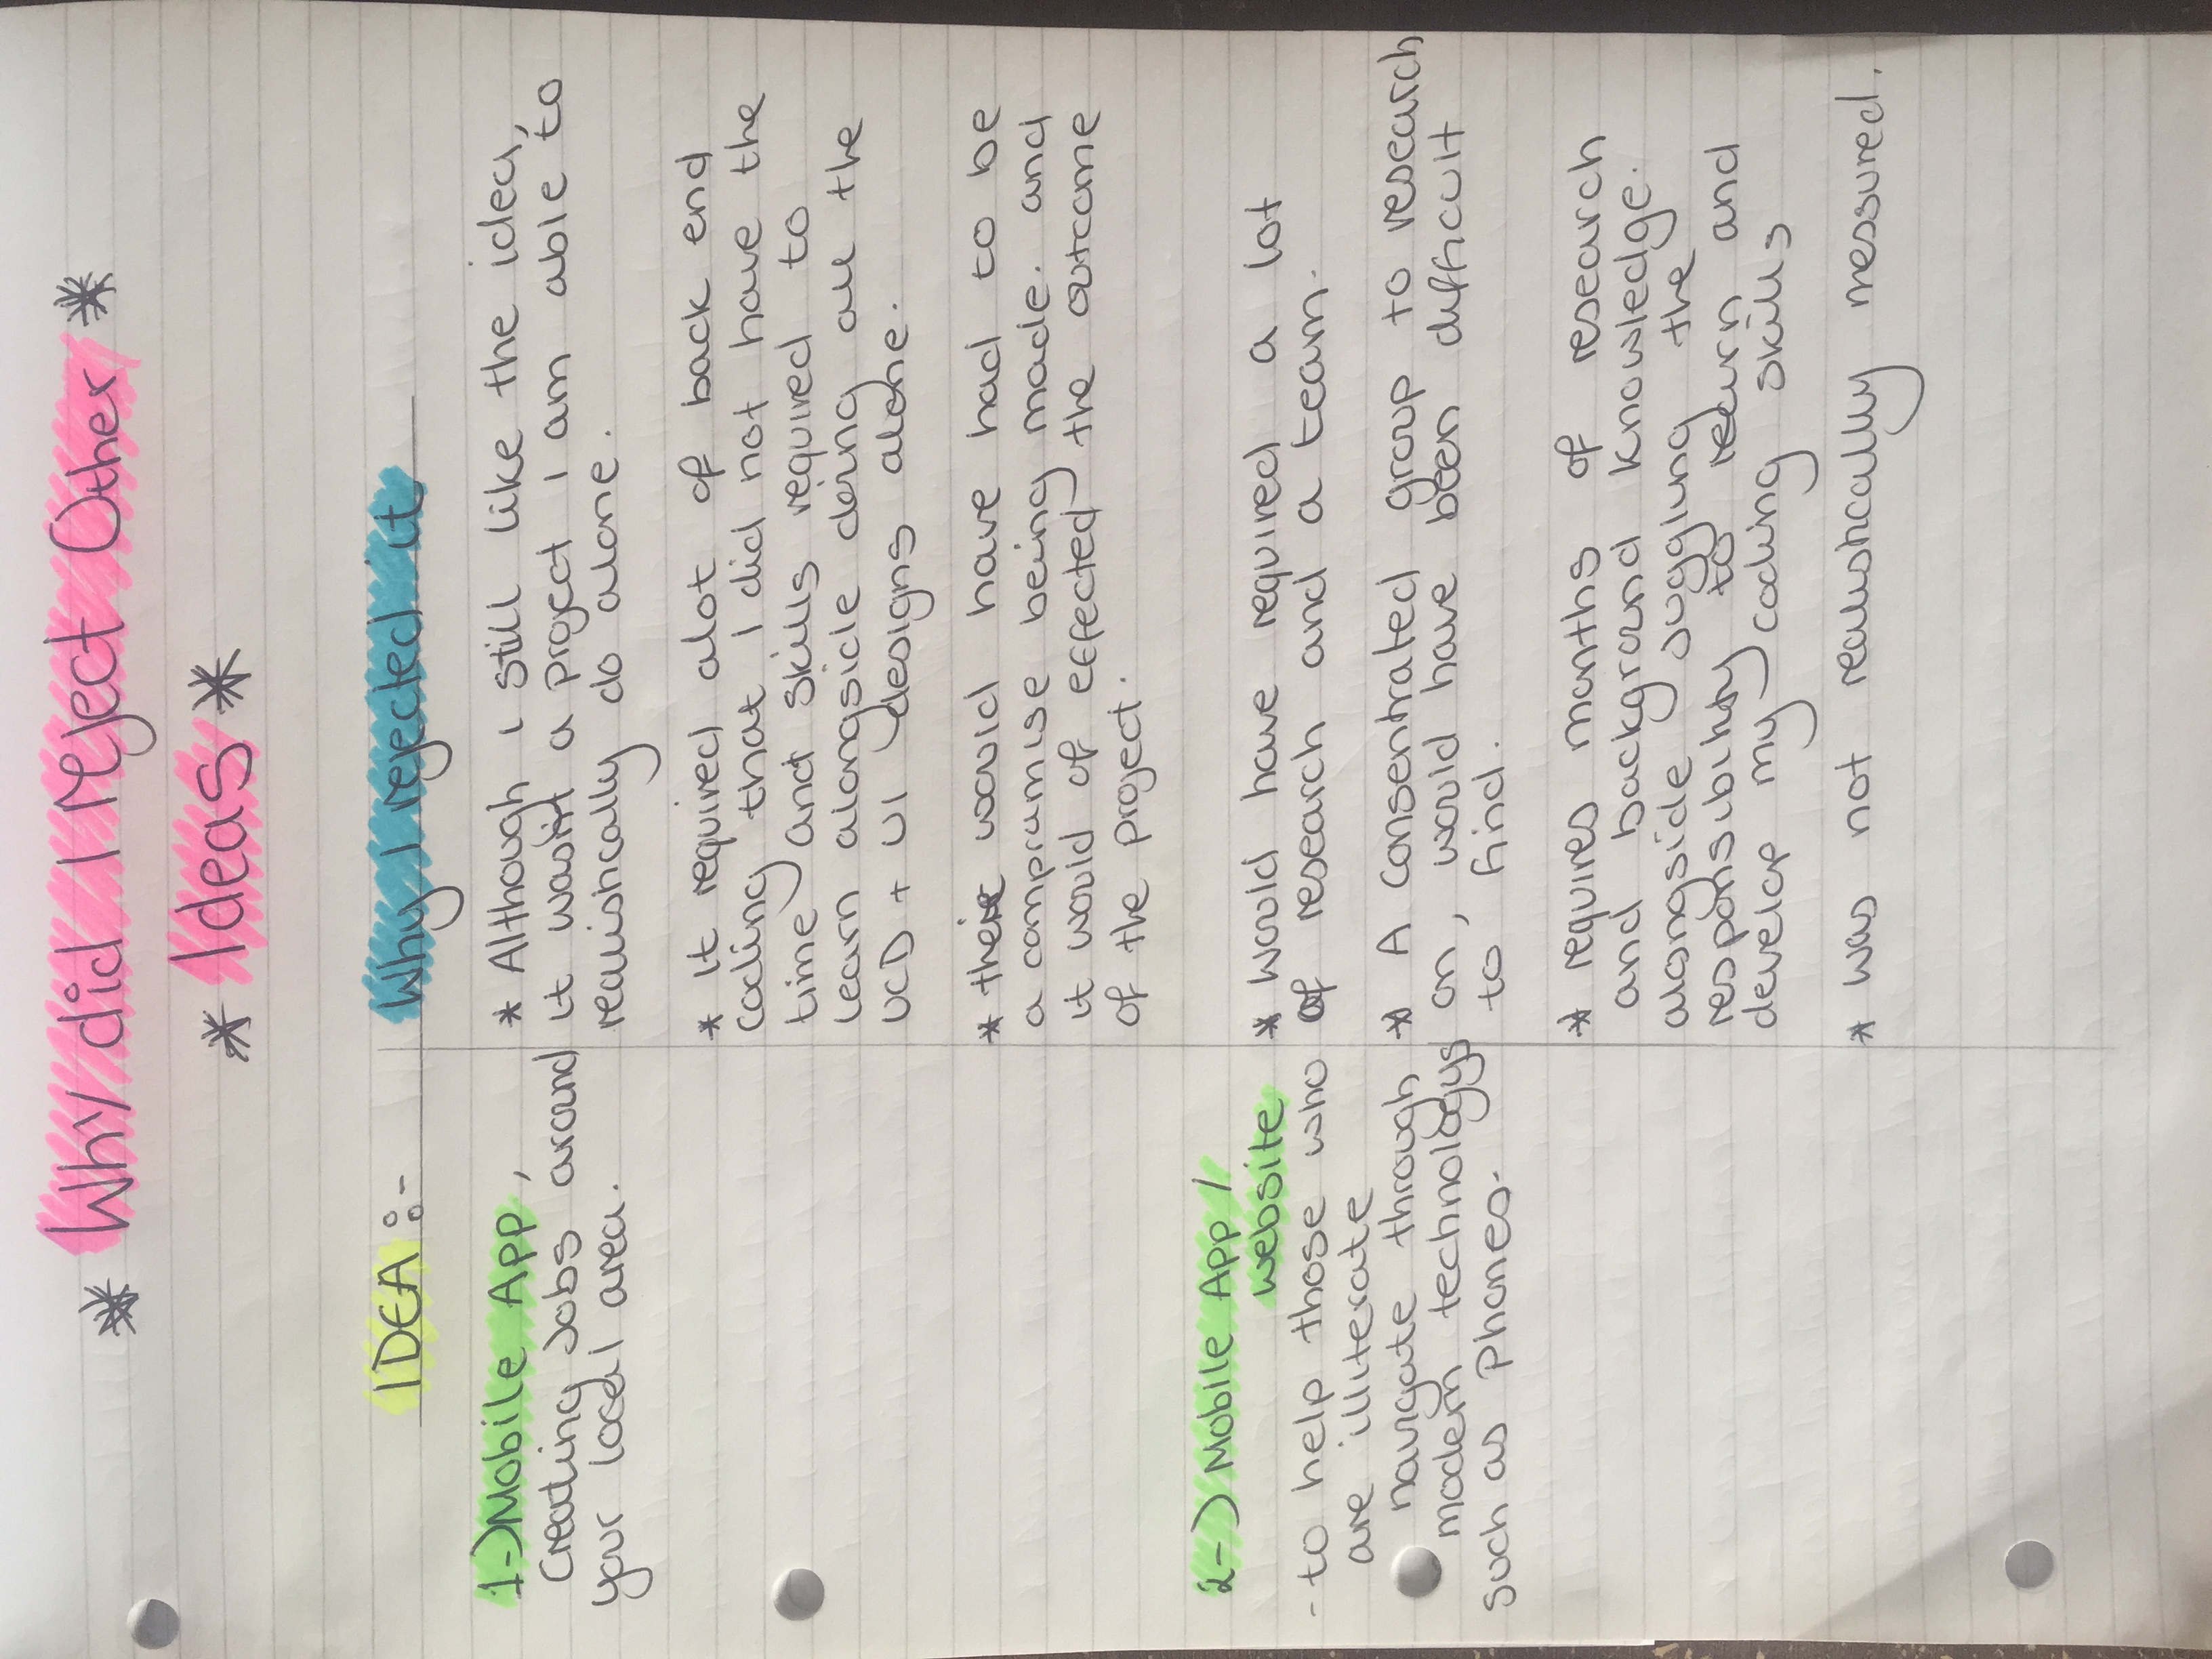 * Why did I reject Other *
* Ideas *
IDEA :-
Why I rejected it
1-) Mobile App,
Creating Jobs around
your local area.
* Although i still like the idea,
it wasnt a project I am able to
realistically do alone.
* it required alot of back end
coding that I did not have the
time and skills required to
learn alongside doing all the
UCD + UI designs alone.
* their would have had to be
a compramise being made. and
it would of effected the outcome
of the project.
2-) Mobile App /
website
- to help those who
are illiterate
navigate through
modern technologys
such as Phones.
* Would have required a lot
of research and a team.
* A consentrated group to research
on, would have been difficult
to find.
* requires months of research
and background knowledge.
alongside juggling the
responsibility to learn and
develop my coding skills
* was not realistically messured.